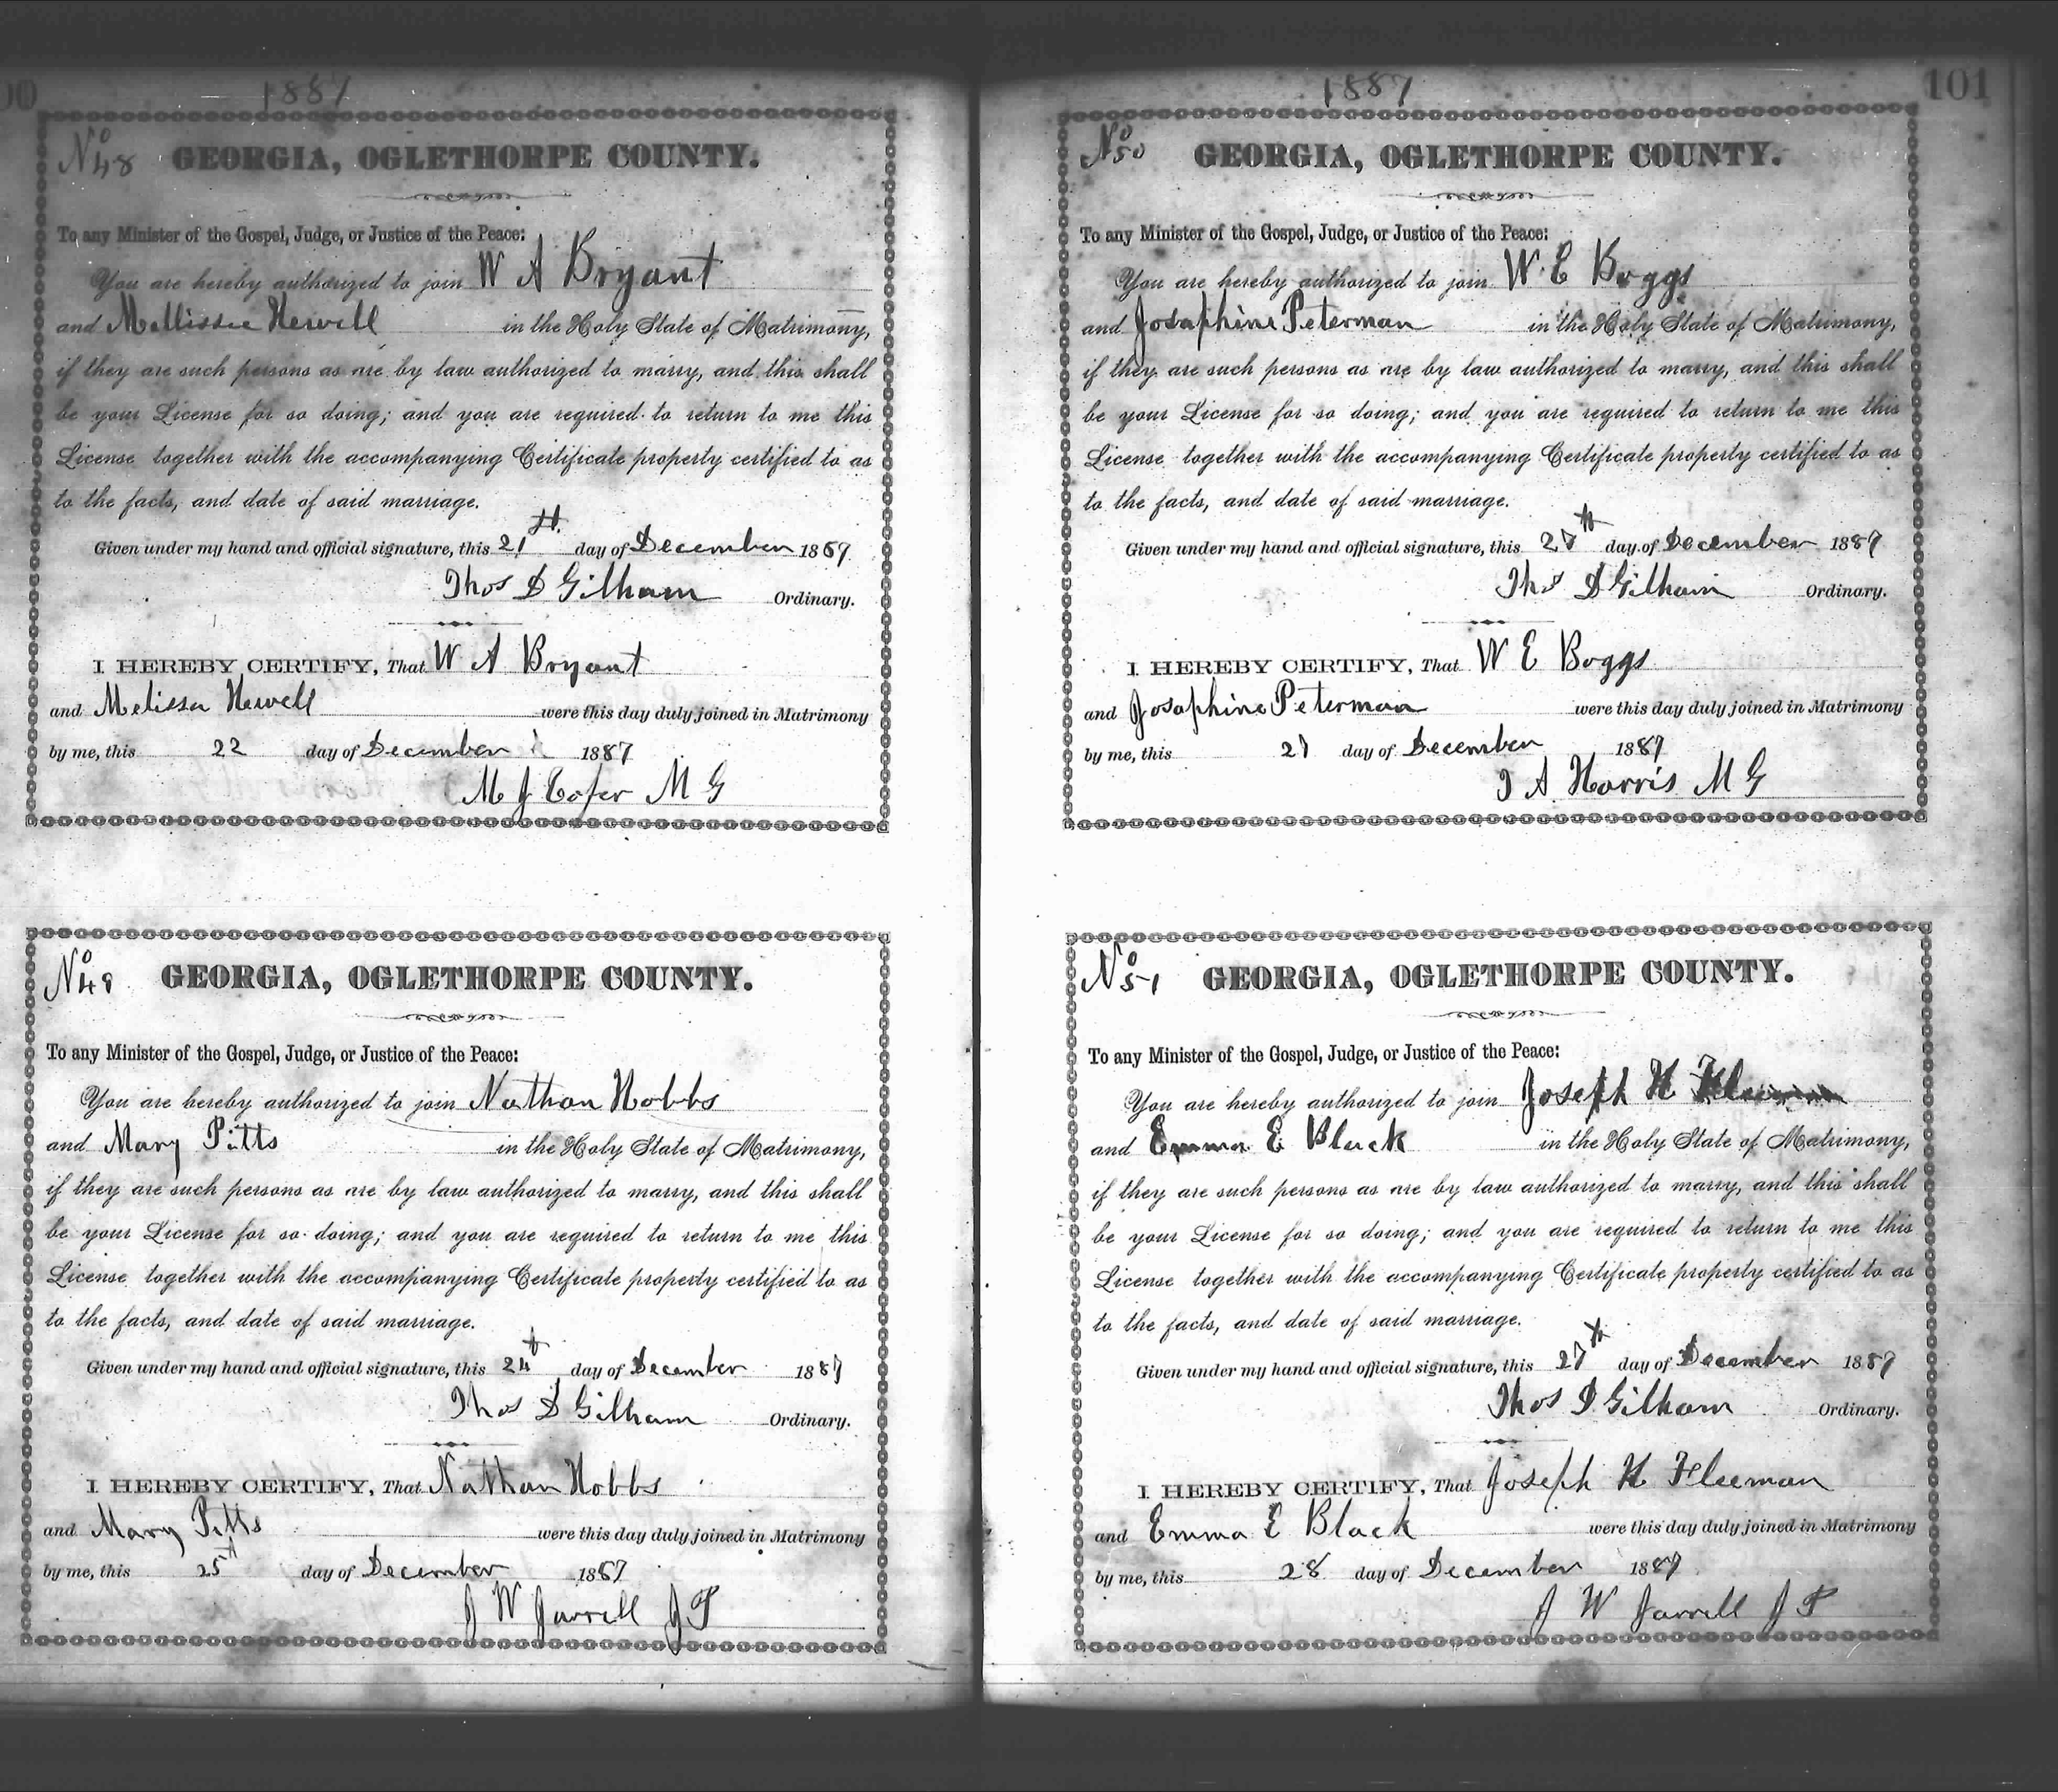 00
1887
No 48 GEORGIA, OGLETHORPE COUNTY.
To any Minister of the Gospel, Judge, or Justice of the Peace:
You are hereby authorized to join W A Bryant
and Mellissee Newell in the Holy State of Matrimony,
if they are such persons as are by law authorized to marry, and this shall
be your License for so doing; and you are required to return to me this
License together with the accompanying Certificate property certified to as
to the facts, and date of said marriage.
Given under my hand and official signature, this 21st day of December 1887
Thos D Gilham Ordinary.
I HEREBY CERTIFY, That W A Bryant
and Melissa Newell were this day duly joined in Matrimony
by me, this 22 day of December 1887
M J Cofer M G
No 49 GEORGIA, OGLETHORPE COUNTY.
To any Minister of the Gospel, Judge, or Justice of the Peace:
You are hereby authorized to join Nathan Hobbs
and Mary Pitts in the Holy State of Matrimony,
if they are such persons as are by law authorized to marry, and this shall
be your License for so doing; and you are required to return to me this
License together with the accompanying Certificate property certified to as
to the facts, and date of said marriage.
Given under my hand and official signature, this 24th day of December 1887
Thos D Gilham Ordinary.
I HEREBY CERTIFY, That Nathan Hobbs
and Mary Pitts were this day duly joined in Matrimony
by me, this 25th day of December 1887
J W Jarrell J P
1887
101
No 50 GEORGIA, OGLETHORPE COUNTY.
To any Minister of the Gospel, Judge, or Justice of the Peace:
You are hereby authorized to join W E Boggs
and Josaphine Peterman in the Holy State of Matrimony,
if they are such persons as are by law authorized to marry, and this shall
be your License for so doing; and you are required to return to me this
License together with the accompanying Certificate property certified to as
to the facts, and date of said marriage.
Given under my hand and official signature, this 27th day of December 1887
Thos D Gilham Ordinary.
I HEREBY CERTIFY, That W E Boggs
and Josaphine Peterman were this day duly joined in Matrimony
by me, this 27 day of December 1887
J A Harris M G
No 51 GEORGIA, OGLETHORPE COUNTY.
To any Minister of the Gospel, Judge, or Justice of the Peace:
You are hereby authorized to join Joseph H Fleeman
and Emma E Black in the Holy State of Matrimony,
if they are such persons as are by law authorized to marry, and this shall
be your License for so doing; and you are required to return to me this
License together with the accompanying Certificate property certified to as
to the facts, and date of said marriage.
Given under my hand and official signature, this 27th day of December 1887
Thos D Gilham Ordinary.
I HEREBY CERTIFY, That Joseph H Fleeman
and Emma E Black were this day duly joined in Matrimony
by me, this 28 day of December 1887
J W Jarrell J P